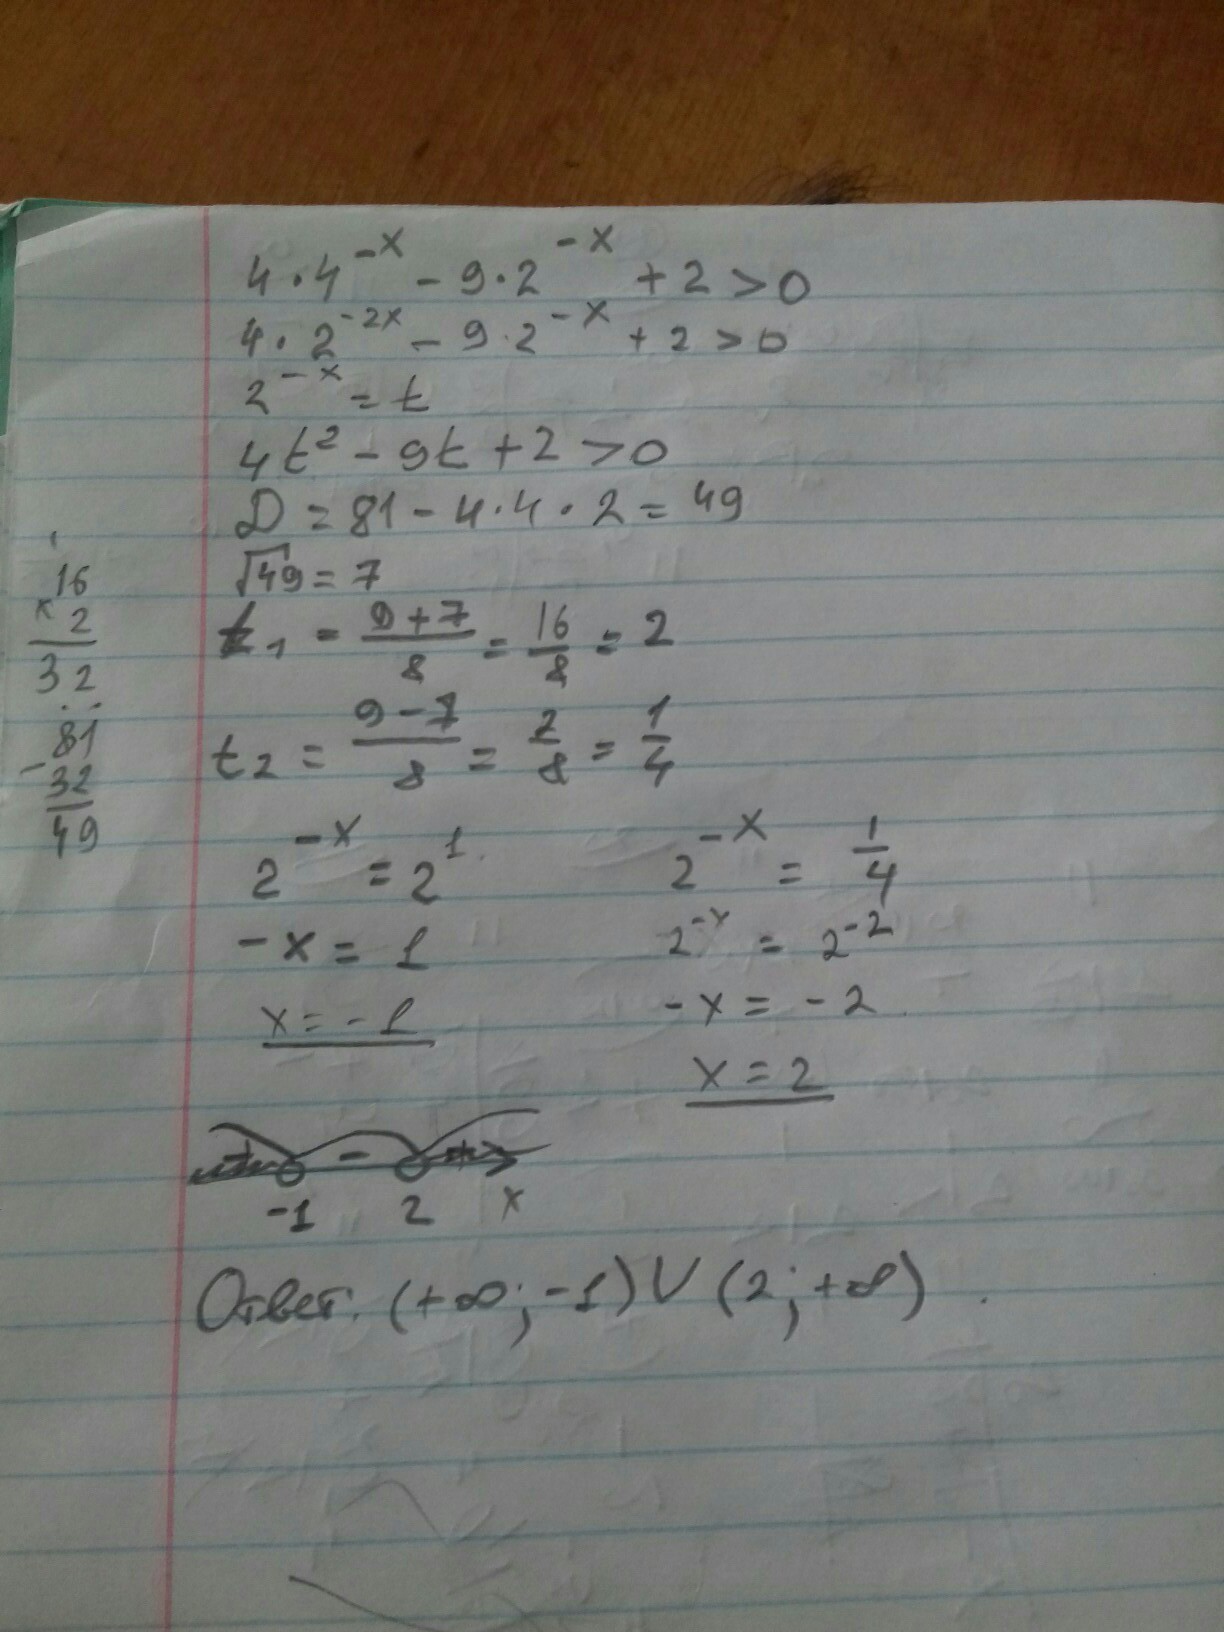 4·4^{-x} - 9·2^{-x} + 2 > 0
4·2^{-2x} - 9·2^{-x} + 2 > 0
2^{-x} = t
4t² - 9t + 2 > 0
D = 81 - 4·4·2 = 49
√49 = 7
t₁ = (9+7)/8 = 16/8 = 2
t₂ = (9-7)/8 = 2/8 = 1/4
16
× 2
32
- 81
32
49
2^{-x} = 2^1
-x = 1
x = -1
2^{-x} = 1/4
2^{-x} = 2^{-2}
-x = -2
x = 2
+ - +
-1 2 x
Ответ: (+∞; -1) ∪ (2; +∞)